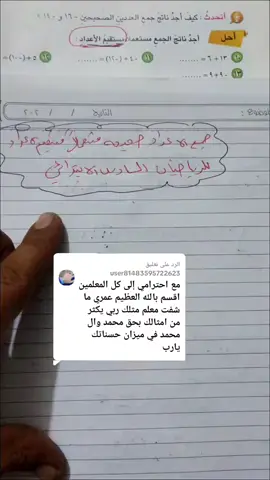 أتحدث: كيف أجد ناتج جمع العددين الصحيحين ١٦٠- و ١٩٠- ؟
أحل أجد ناتج الجمع مستعملا مستقيم الأعداد:
٦ + ١٣ = ........
٤٠ + (١٢٠-) = ........
٥ + (١٠٠-) =
٩ + ٩٠ =
التاريخ / / ٢٠٢
جمع الاعداد الصحيحة مستعملا مستقيم الاعداد
للرياضيات السادس الابتدائي
الرد على تعليق
user81483595722623
مع احترامي إلى كل المعلمين
اقسم بالله العظيم عمري ما
شفت معلم مثلك ربي يكثر
من امثالك بحق محمد وال
محمد في ميزان حسناتك
يارب